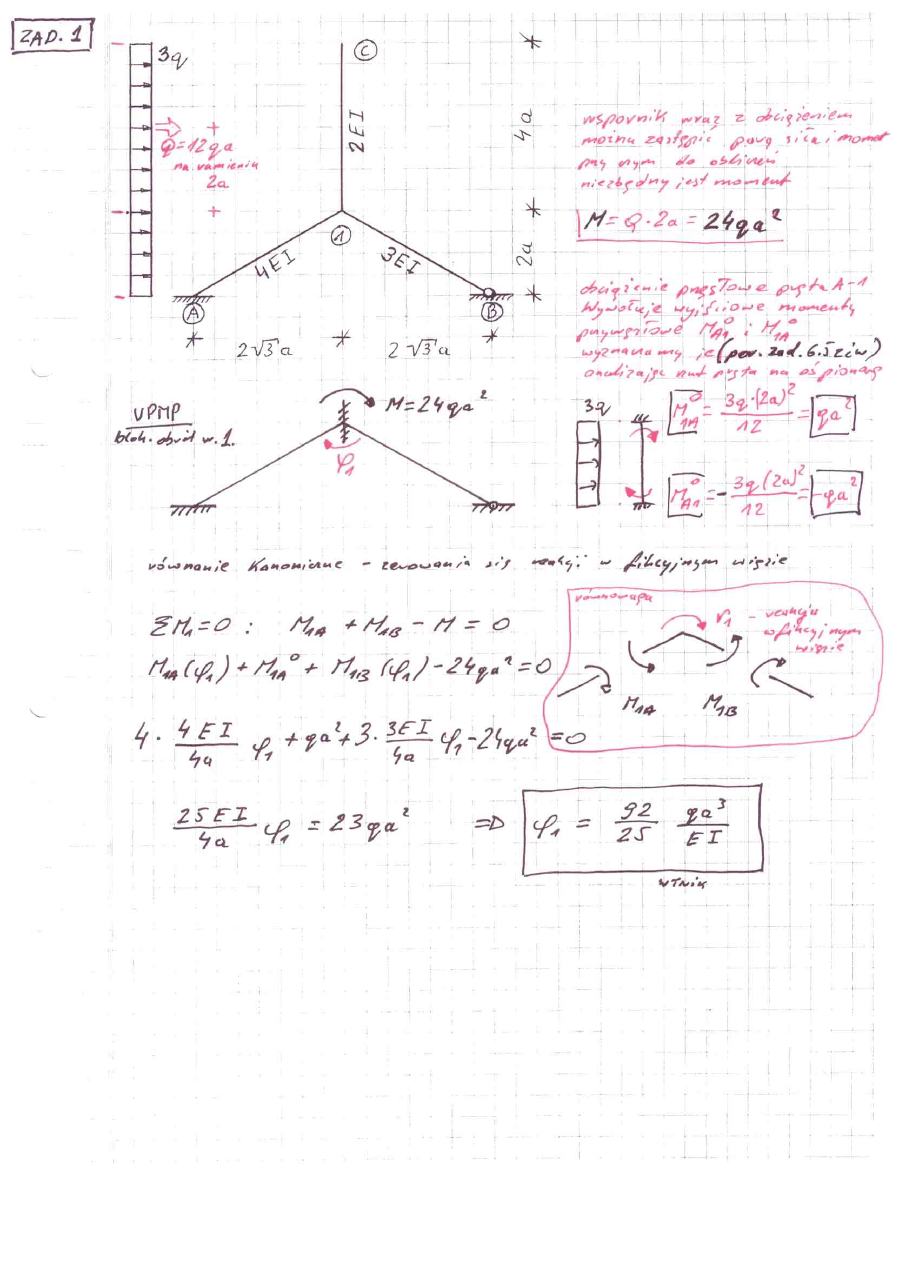 ZAD. 1
3q
C
2EI
4a
Q=12qa
na ramieniu
2a
wspornik wraz z obciążeniem
można zastąpić parą siła i moment
przy czym do obliczeń
niezbędny jest moment
M = Q · 2a = 24qa²
1
4EI
3EI
2a
A
B
2√3 a
2√3 a
obciążenie przęsłowe pręta A-1
wywołuje wyjściowe momenty
przywęzłowe M°A1 i M°1A
wyznaczamy je (por. zad. 6. 5 z ćw)
analizując rzut pręta na oś pionową
UPMP
blok. obrót w. 1.
M=24qa²
φ1
3q
M°1A = 3q·(2a)²/12 = qa²
M°A1 = - 3q(2a)²/12 = -qa²
równanie kanoniczne - zerowania się reakcji w fikcyjnym więzie
ΣM1=0 : M1A + M1B - M = 0
M1A(φ1) + M1A° + M1B(φ1) - 24qa² = 0
równowaga
r1 - reakcja
w fikcyjnym
więzie
M1A
M1B
4 · 4EI/4a φ1 + qa² + 3 · 3EI/4a φ1 - 24qa² = 0
25EI/4a φ1 = 23qa² => φ1 = 92/25 qa³/EI
WYNIK